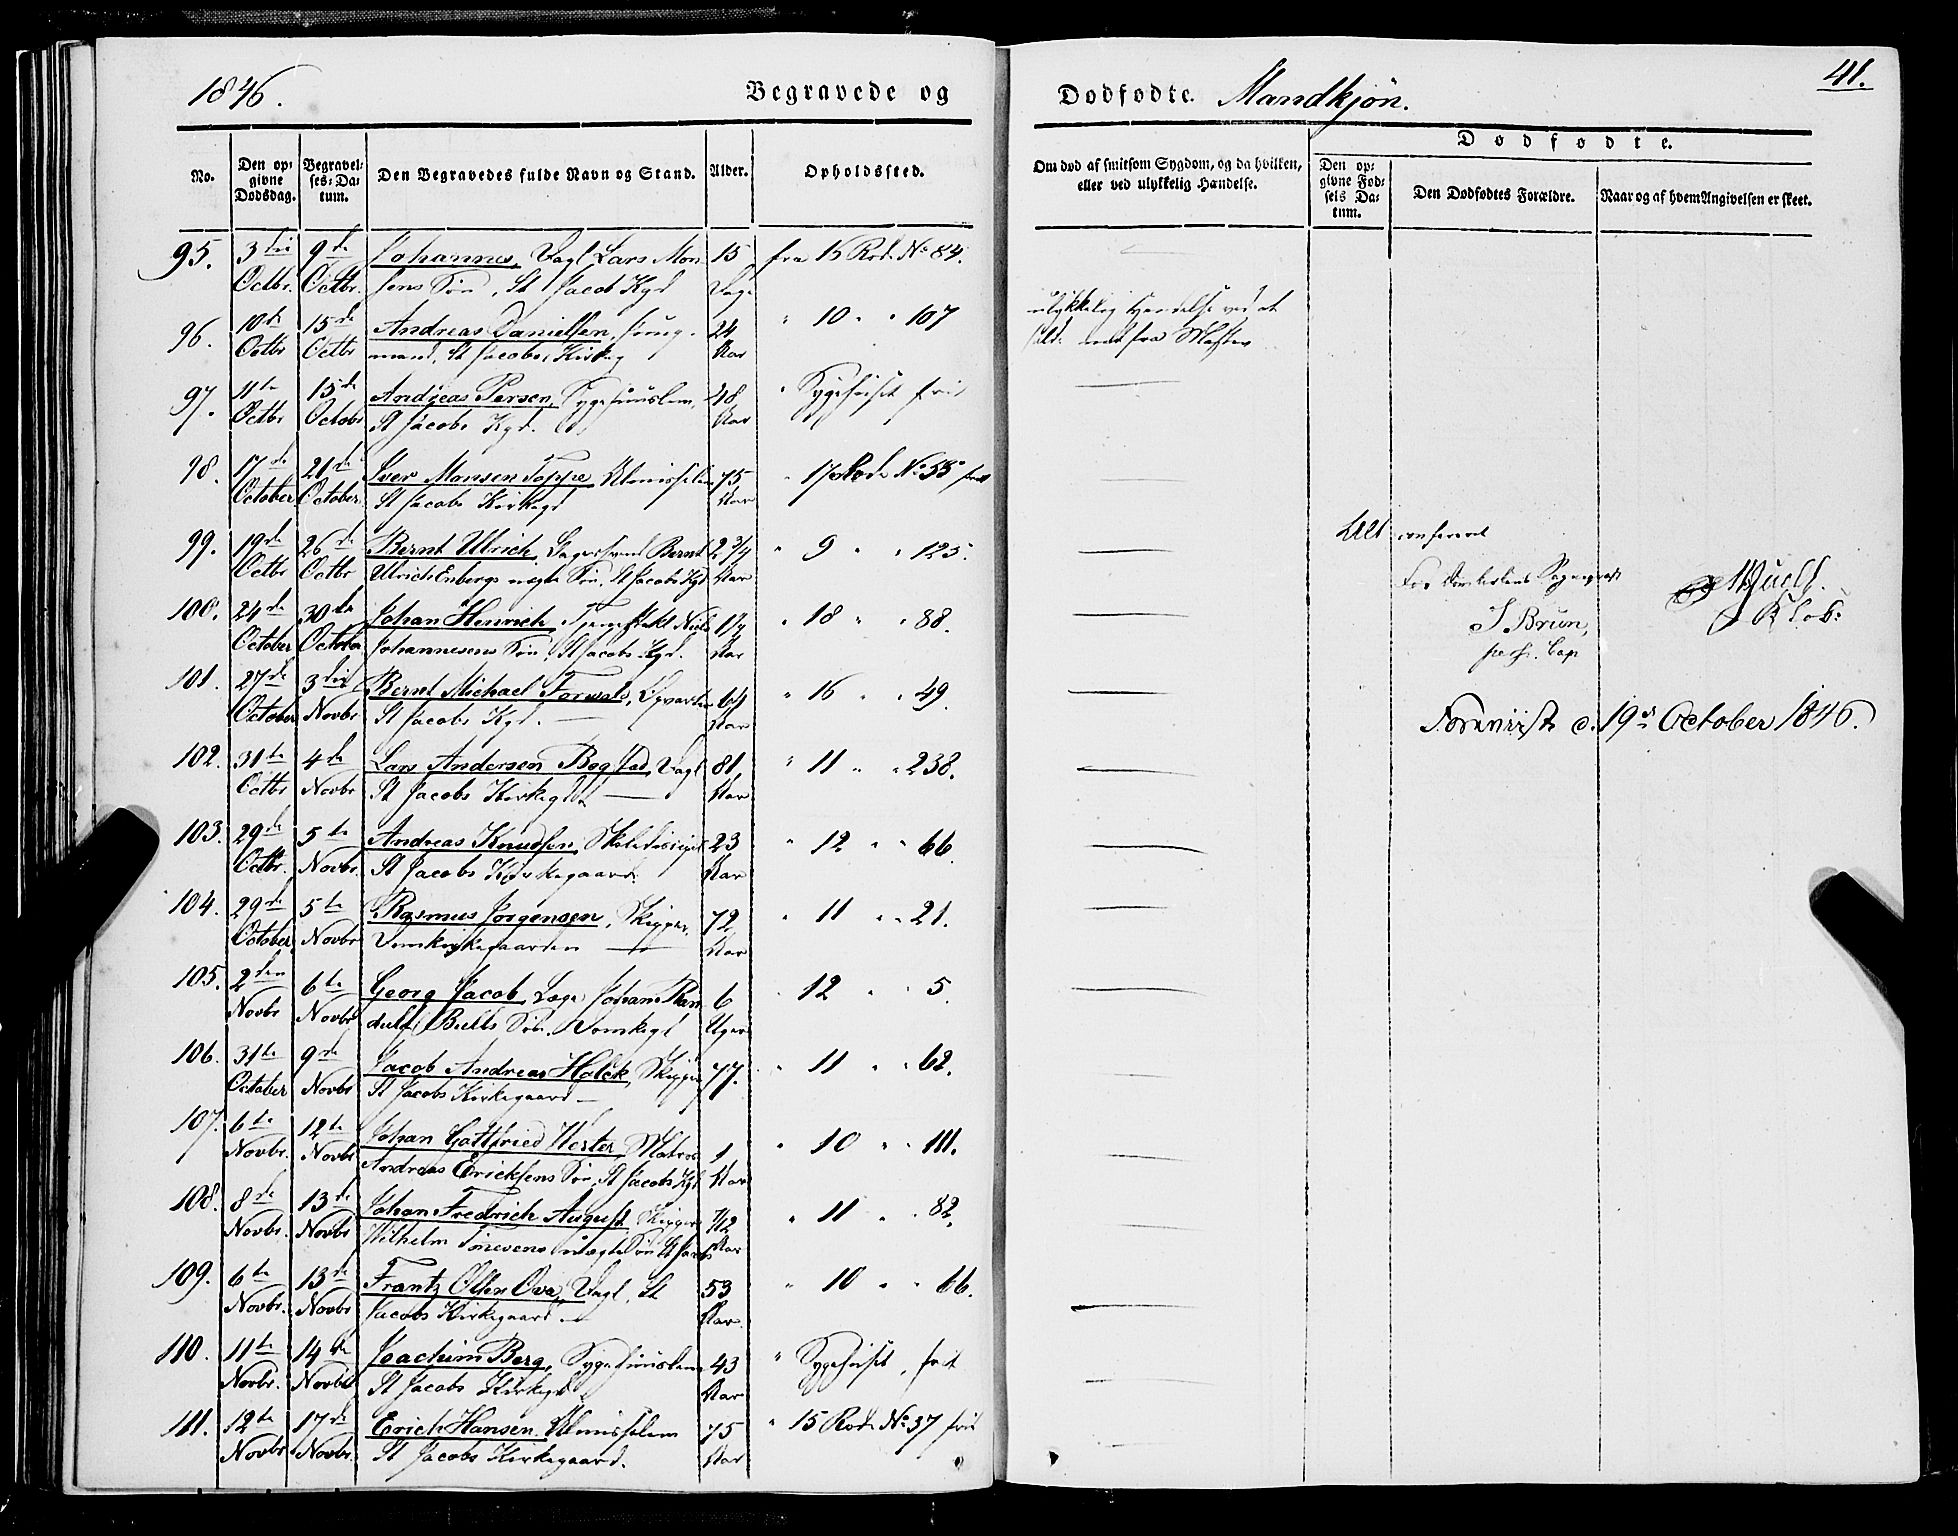 1846.
Begravede og
No.
Den opgivne Dødsdag.
Begravelses-Datum.
Den Begravedes fulde Navn og Stand.
Alder.
Opholdssted.
95. 3die 9de Johannes, Dagl. Lars Mon 15 fra 15 Rode No 84.
Octbr. Octbr. sens Søn, St Jacob Kgd Dage
96. 10de 15de Andreas Danielsen, 24 " 10 " " 107
Octbr Octbr mand, St Jacobs Kirkeg Aar
97. 11te 15de Andreas Persen, Sygehuuslem, 48 " Sygehuset frit
Octbr Octobr St Jacobs Kgd. Aar
98. 17de 21de Iver Monsen Toppe, Almisselem 75 " 17de Rode No 55 frit
October October St Jacobs Kirkegd Aar
99. 19de 26de Bernt Ulrich, Bernt 2 3/4 " 9 " " 125.
Octbr Octbr Ulrich Enbergs uægte Søn, St Jacobs Kgd Aar
100. 24de 30de Johan Henrich, Niels " 18 " " 88.
October October Johannesens Søn, St Jacobs Kgd. Aar
101. 27de 3die Bernt Michael 64 " 16 " " 49.
October Novbr St Jacobs Kgd. Aar
102. 31te 4de Lars Andersen Bogstad, Dagl 81 " 11 " " 238.
Octbr Novbr St Jacobs Kirkegd Aar
103. 29de 5te Andreas Knudsen, 23 " 12 " " 66.
Octbr. Novbr. St Jacobs Kirkegaard. Aar
104. 29de 5te Rasmus Jørgensen, Skipper, 72 " 11 " " 21.
October Novbr Domkirkegaarden Aar
105. 2den 6te Georg Jacob, Læge Johan Ran 6 " 12 " " 5.
Novbr Novbr dulf Bulls Søn. Domkgd Uger
106. 31te 9de Jacob Andreas Holck, Skipper 77. " 11 " " 62.
October Novbr St Jacobs Kirkegaard
107. 6te 12te Johan Gottfried Wester, Matros 1 " 10 " " 111.
Novbr. Novbr Andreas Ericksens Søn, St Jacobs Kgd Aar
108. 8de 13de Johan Fredrich August, Skipper 7/12 " 11 " " 82.
Novbr. Novbr Wilhelm Tønesens uægte Søn St Jacobs Aar
109. 6te 13de Frantz Olsen Ova, Dagl, St 53 " 10 " " 66.
Novbr. Novbr Jacobs Kirkegaard Aar.
110. 11te 14de Joachim Berg, Sygehuuslem 43 " Sygehuset, frit
Novbr. Novbr St Jacobs Kirkegd Aar
111. 12te 17de Erich Hansen Almisselem 75 " 15 Rode No 37 frit
Novbr Novbr. St Jacobs Kirkegaard. Aar
Dødfødte. Mandkjøn.
41.
Dødfødte.
Om død af smitsom Sygdom, og da hvilken, eller ved ulykkelig Hændelse.
Den opgivne Fødsels Datum.
Den Dødfødtes Forældre.
Naar og af hvem Angivelsen er skeet.
ulykkelig Hændelse ved at
falde ned fra Masten
Alt confereret
For Domkirkens Sognepræst
J Brun,
pers. Cap
Klok:
Foreviist d. 19de October 1846.